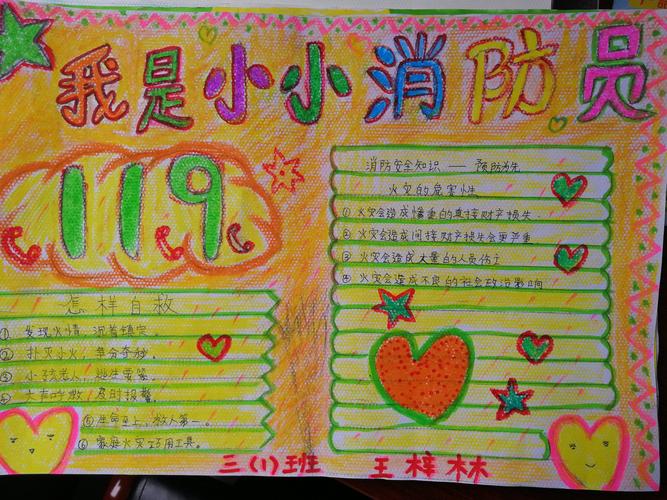 我是小小消防员
119
怎样自救
① 发现火情，沉着镇定。
② 扑灭小火，争分夺秒。
③ 小孩老人，逃生要紧。
④ 大声呼救，及时报警。
⑤ 生命至上，救人第一。
⑥ 家庭火灾巧用工具。
消防安全知识 —— 预防为先
火灾的危害性
① 火灾会造成惨重的直接财产损失
② 火灾会造成间接财产损失会更严重
③ 火灾会造成大量的人员伤亡
④ 火灾会造成不良的社会政治影响
三(1)班 王梓林